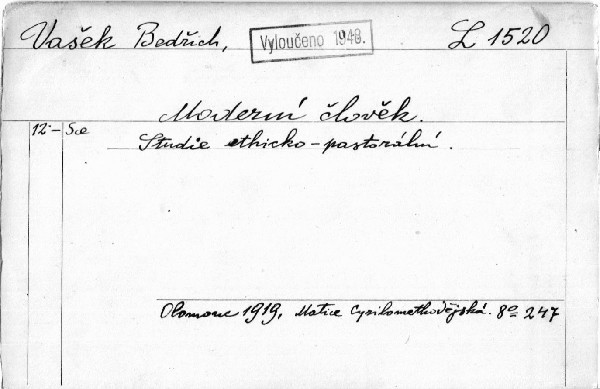 Vašek Bedřich,
Vyloučeno 1948.
L 1520
Moderní člověk.
12·– Sce
Studie ethicko-pastorální.
Olomouc 1919, Matice Cyrilomethodějská. 8º 247